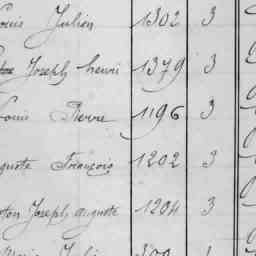 Louis Julien 1302 3
Joseph henri 1379 3
Louis Pierre 1196 3
Auguste François 1202 3
Joseph auguste 1204 3